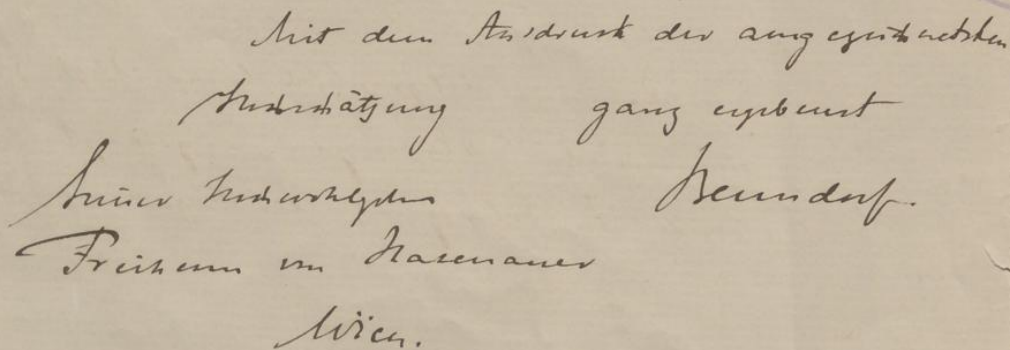 Mit dem Ausdruck der ausgezeichnetsten
Hochschätzung ganz ergebenst
Seiner Hochwohlgeboren Benndorf.
Freiherrn von Hasenauer
Wien.